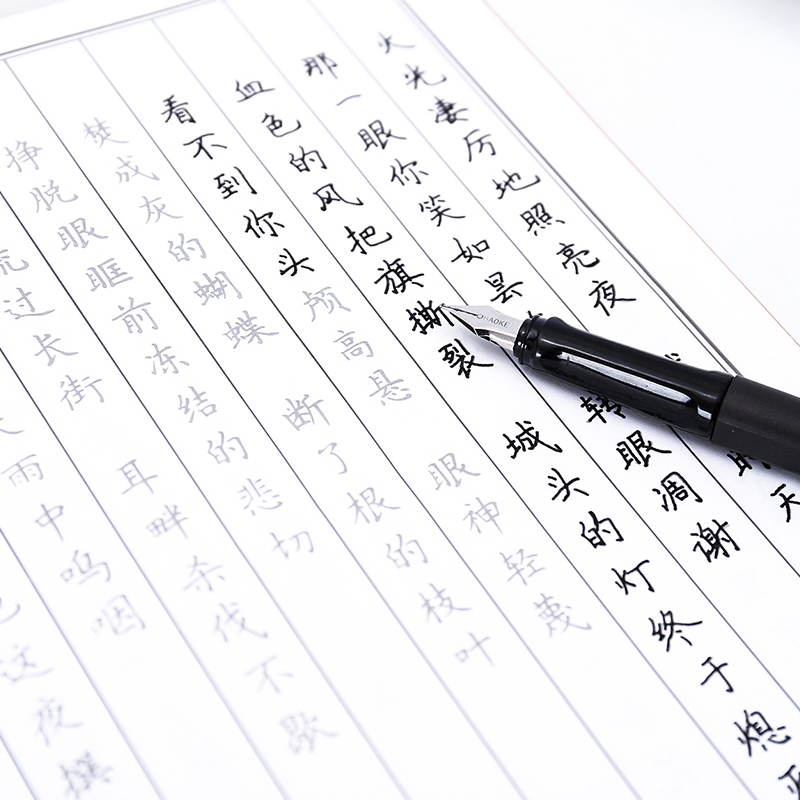 火光凄厉地照亮夜 明天
那一眼你笑如昙 转眼凋谢
血色的风把旗撕裂 城头的灯终于熄灭
看不到你头颅高悬 眼神轻蔑
焚成灰的蝴蝶 断了根的枝叶
挣脱眼眶前冻结的悲切
过长街 耳畔杀伐不歇
雨中呜咽
这夜